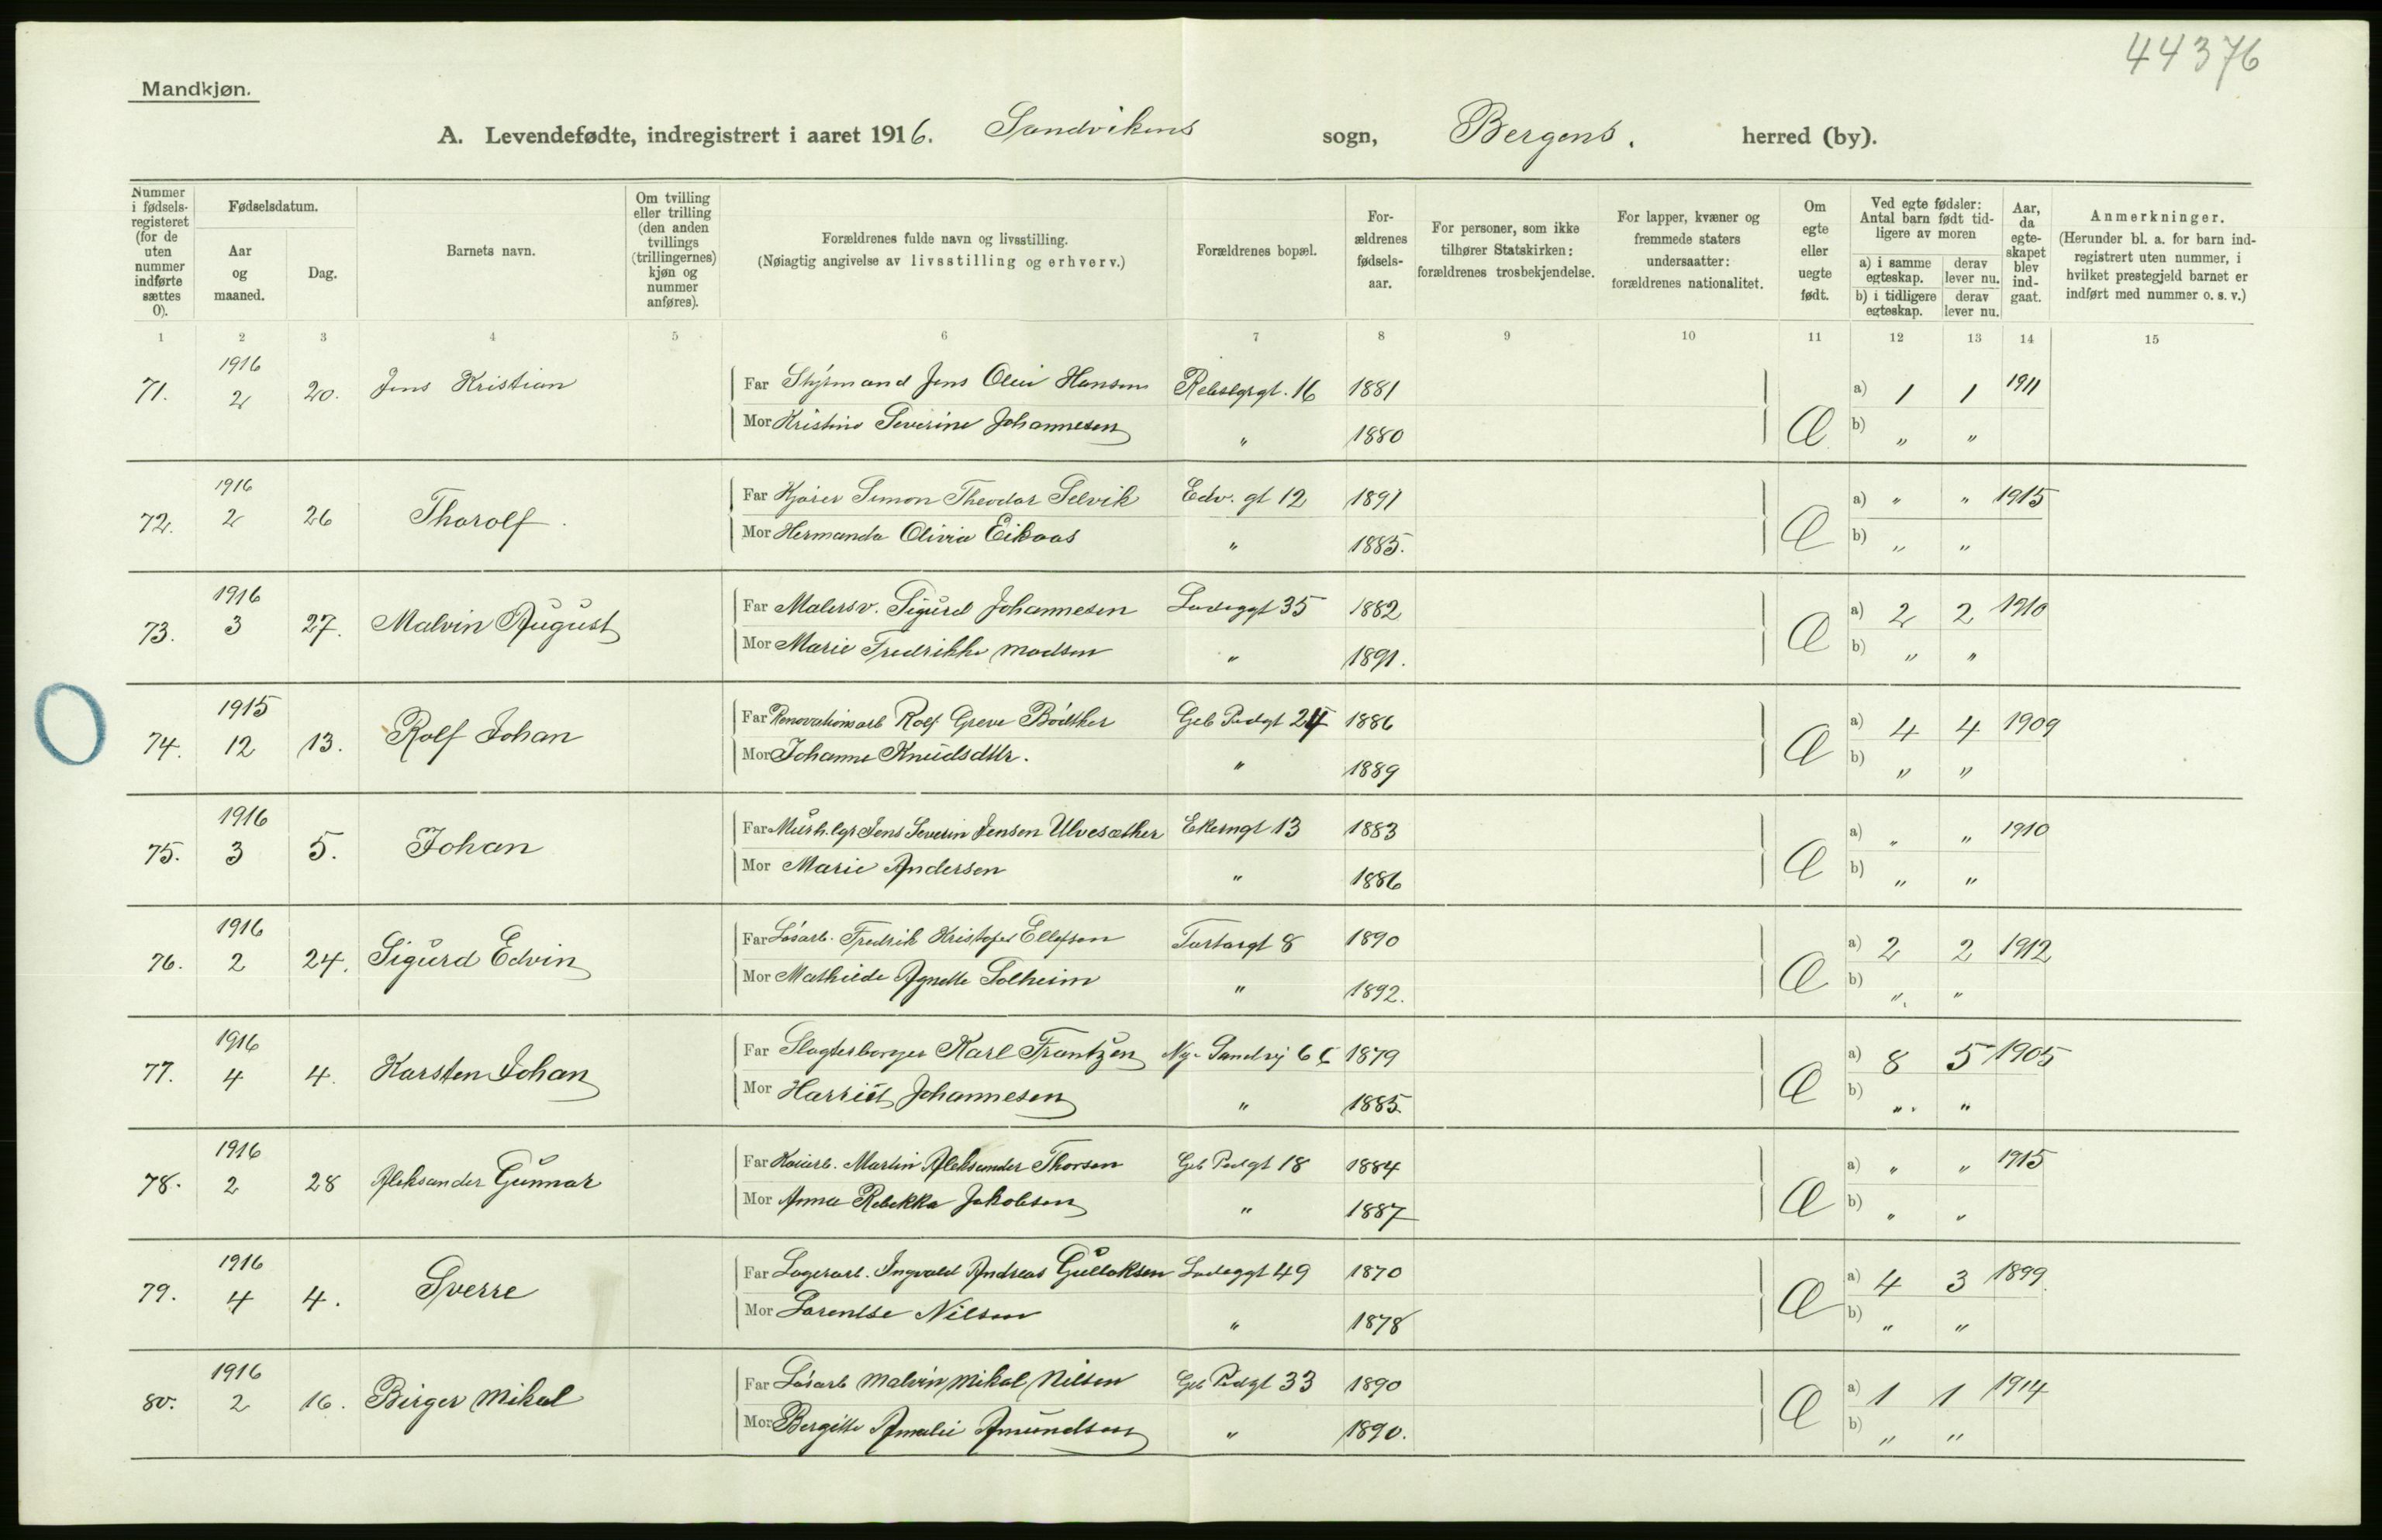 44376
Mandkjøn.
A. Levendefødte, indregistrert i aaret 1916. Sandvikens sogn, Bergens. herred (by).
Nummer i fødsels-registeret (for de uten nummer indførte sættes 0).
Fødselsdatum.
Aar og maaned.
Dag.
Barnets navn.
Om tvilling eller trilling (den anden tvillings (trillingernes) kjøn og nummer anføres).
Forældrenes fulde navn og livsstilling.
(Nøiagtig angivelse av livsstilling og erhverv.)
Forældrenes bopæl.
For-ældrenes fødsels-aar.
For personer, som ikke tilhører Statskirken: forældrenes trosbekjendelse.
For lapper, kvæner og fremmede staters undersaatter: forældrenes nationalitet.
Om egte eller uegte født.
Ved egte fødsler: Antal barn født tid-ligere av moren
a) i samme egteskap. derav lever nu.
b) i tidligere egteskap. derav lever nu.
Aar, da egte-skapet blev ind-gaat.
Anmerkninger.
(Herunder bl. a. for barn ind-registrert uten nummer, i hvilket prestegjeld barnet er indført med nummer o. s. v.)
1 2 3 4 5 6 7 8 9 10 11 12 13 14 15
71. 1916 2 20. Jens Kristian
Far Styrmand Jens Olai Hansen 16 1881 a) 1 1 1911
Mor Kristine Severine Johannesen " 1880 Æ b) " "
72. 1916 2 26 Thorolf.
Far Kjører Simon Theodor Selvik Edv. gt 12 1891 a) " " 1915
Mor Hermanda Olivia Eikaas " 1885. Æ b) " "
73. 1916 3 27. Malvin August
Far Malersv. Sigurd Johannesen Ladeggt 35 1882 a) 2 2 1910
Mor Marie Fredrikke Madsen " 1891. Æ b) " "
74. 1915 12 13. Rolf Johan
Far Renovationsarb Rolf Greve Bödtker Geb Pedgt 24 1886 a) 4 4 1909
Mor Johanne Knudsdttr. " 1889 Æ b) " "
75. 1916 3 5. Johan
Far Murh.lgr Jens Severin Jensen Ulvesæther Ekerngt 13 1883 a) " " 1910
Mor Marie Andersen " 1886 Æ b) " "
76. 1916 2 24. Sigurd Edvin
Far Løsarb. Fredrik Kristofer Ellefsen 8 1890 a) 2 2 1912
Mor Mathilde Agnette Solheim " 1892. Æ b) " "
77. 1916 4 4. Karsten Johan
Far Slagterborger Karl Frantzen Ny-Sandvj 1879 a) 8 5 1905
Mor Harriet Johannesen " 1885. Æ b) " "
78. 1916 2 28 Aleksander Gunnar
Far Kaiarb. Martin Aleksander Thorsen Geb Pedgt 18 1884 a) " " 1915
Mor Anna Rebekka Jakobsen " 1887 Æ b) " "
79. 1916 4 4. Sverre
Far Lagerarb. Ingvald Andreas Gullaksen Ladeggt 49 1870 a) 4 3 1899.
Mor Lorentse Nilsen " 1878 Æ b) " "
80. 1916 2 16. Birger Mikal
Far Løsarb Malvin Mikal Nilsen Geb Pedgt 33 1890 a) 1 1 1914
Mor Bergitte Amalie Amundsen " 1890. Æ b) " "